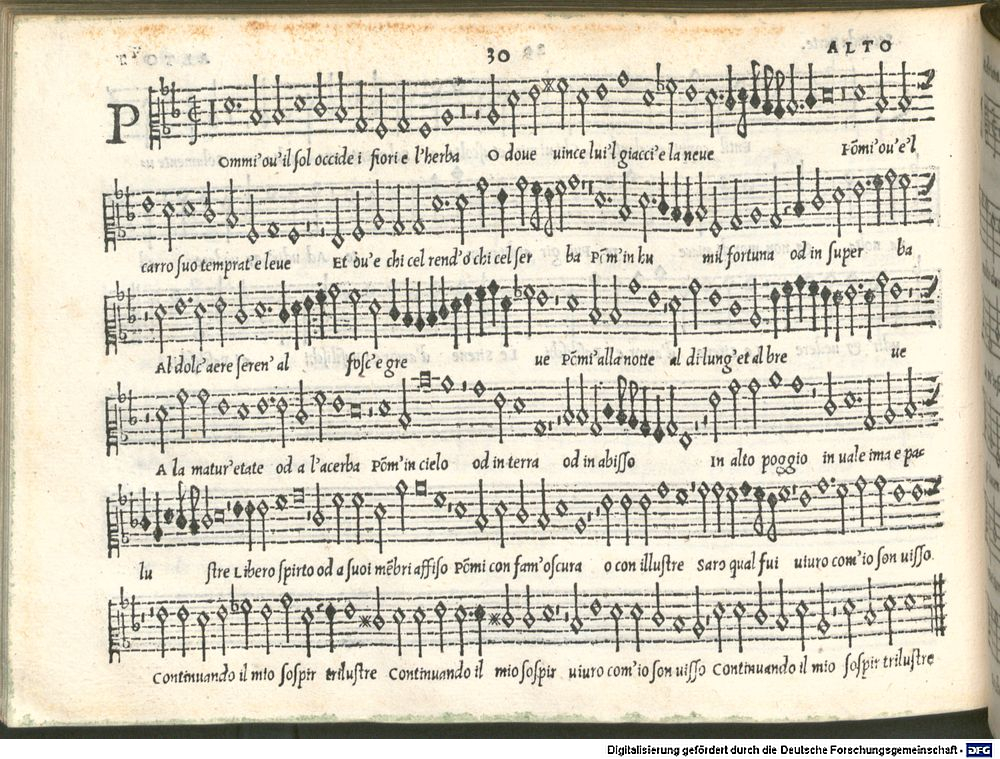 30 ALTO
P Ommi'ou'il sol occide i fiori e l'herba O doue uince lui'l giacci'e la neue Põmi'ou'e'l
carro suo temprat'e leue Et ou'e chi cel rend'o chi cel ser ba Põm'in hu mil fortuna od in super ba
Al dolc'aere seren' al fosc'e gre ue Põmi'alla notte al di lung'et al bre ue
A la matur'etate od a l'acerba Põm'in cielo od in terra od in abisso In alto poggio in uale ima e pac
lu stre Libero spirto od a suoi mẽbri affiso Põmi con fam'oscura o con illustre Sarò qual fui uiuro com'io son uisso.
Continuando il mio sospir trilustre Continuando il mio sospir uiuro com'io son uisso Continuando il mio sospir trilustre
Digitalisierung gefördert durch die Deutsche Forschungsgemeinschaft - DFG